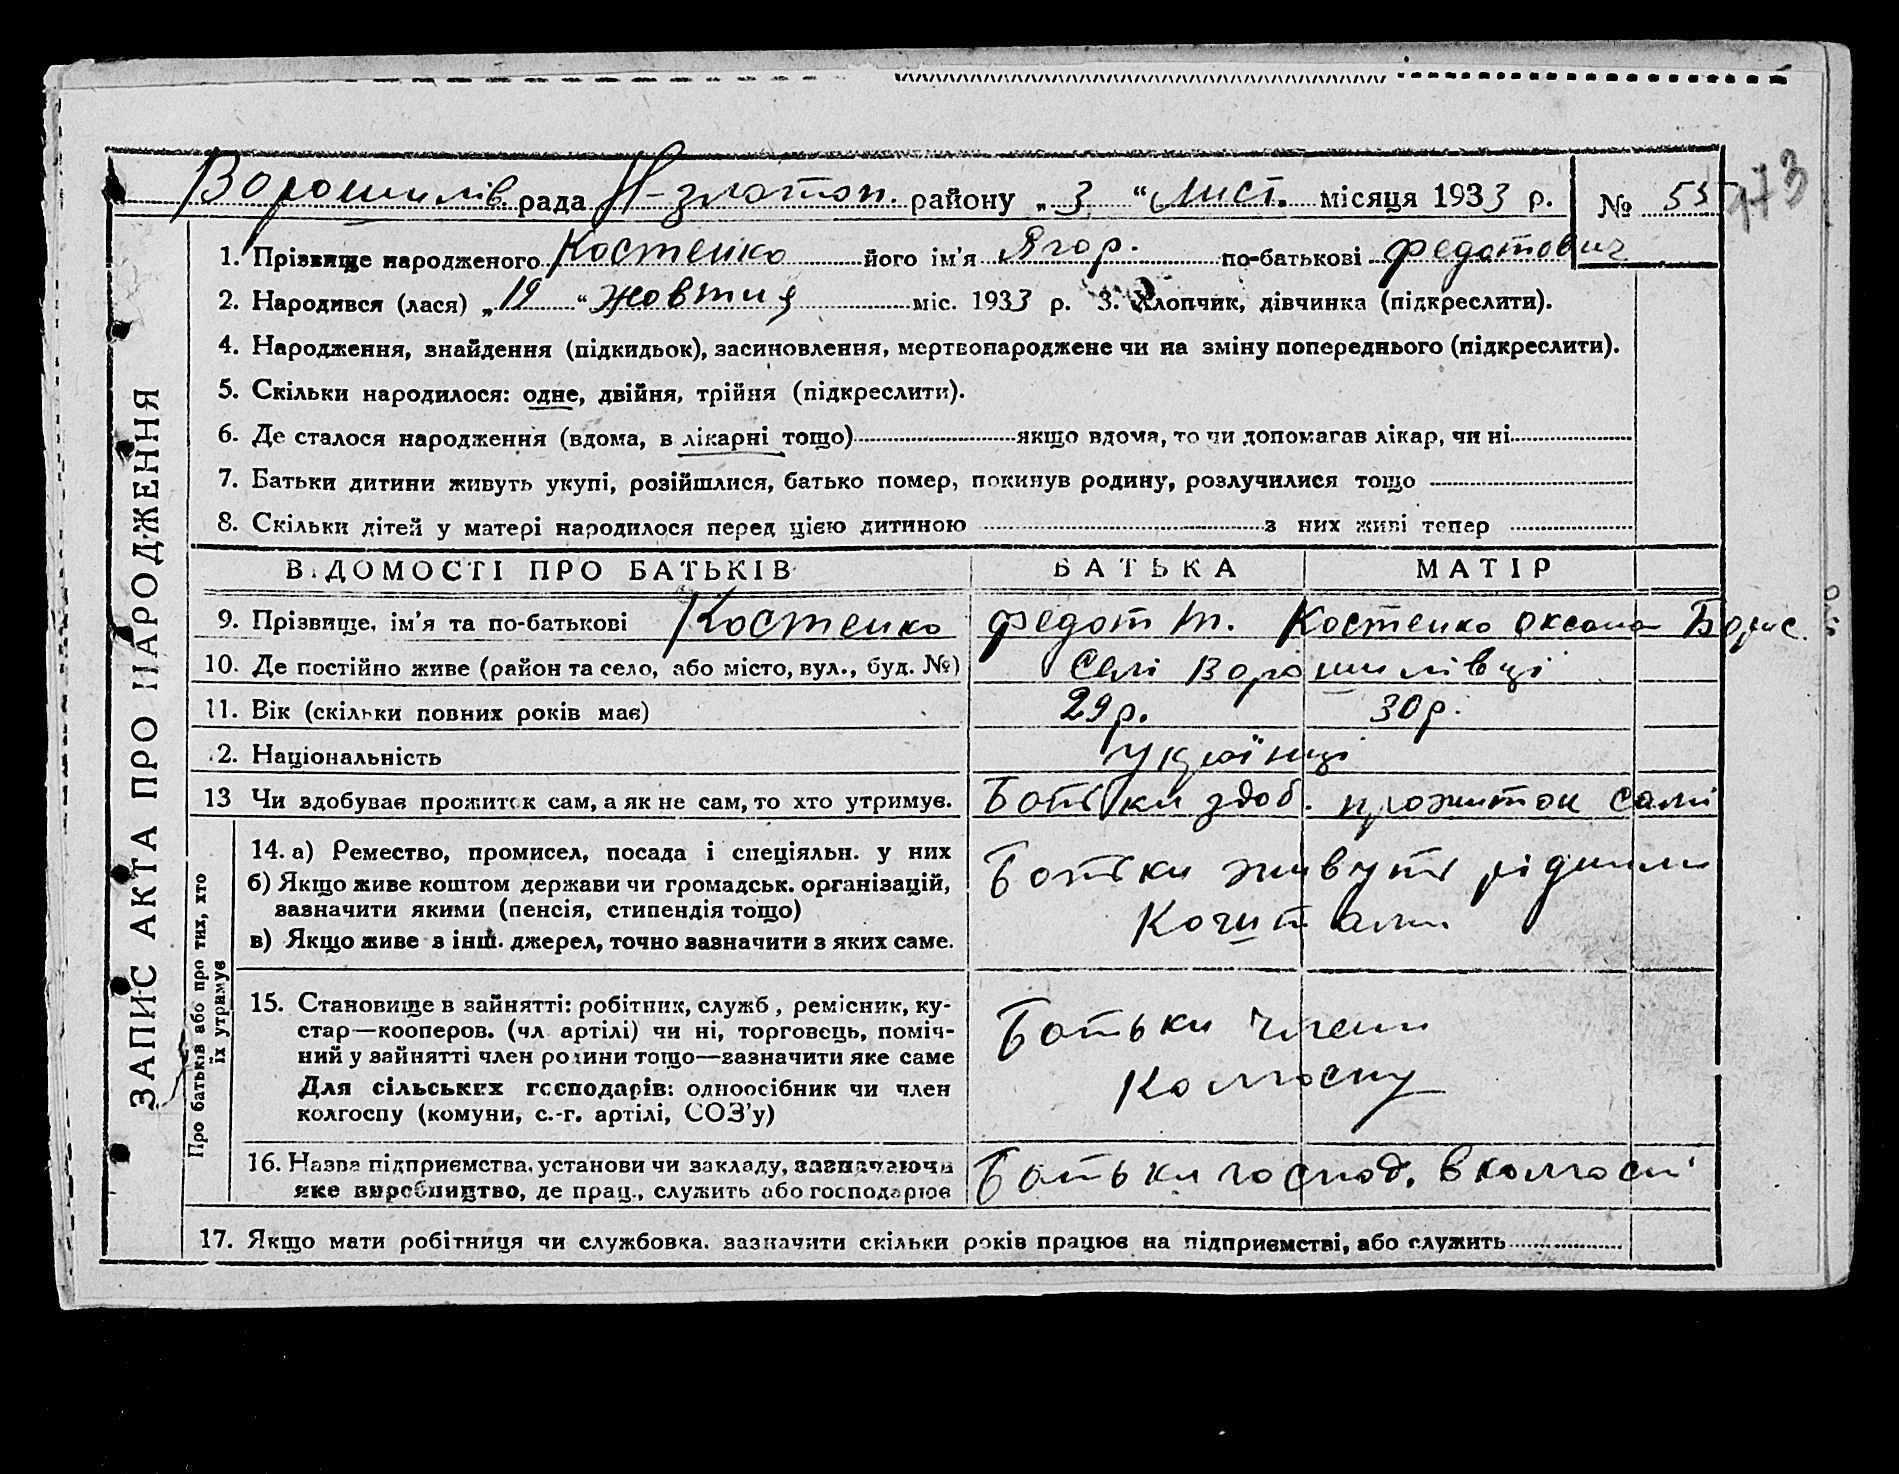 173
Ворошилів. рада Н-златоп. району „ 3 “ Лист. місяця 1933 р. № 55
1. Прізвище народженого Костенко його ім'я Ягор. по-батькові Федотович
2. Народився (лася) „ 19 “ жовтня міс. 1933 р. 3. Хлопчик, дівчинка (підкреслити).
4. Народження, знайдення (підкидьок), засиновлення, мертвонароджене чи на зміну попереднього (підкреслити).
5. Скільки народилося: одне, двійня, трійня (підкреслити).
6. Де сталося народження (вдома, в лікарні тощо) якщо вдома, то чи допомагав лікар, чи ні
7. Батьки дитини живуть укупі, розійшлися, батько помер, покинув родину, розлучилися тощо
8. Скільки дітей у матері народилося перед цією дитиною з них живі тепер
ЗАПИС АКТА ПРО НАРОДЖЕННЯ
ВІДОМОСТІ ПРО БАТЬКІВ БАТЬКА МАТІР
9. Прізвище, ім'я та по-батькові Костенко Федот Т. Костенко Оксана Борис.
10. Де постійно живе (район та село, або місто, вул., буд. №) Селі Ворошилівці
11. Вік (скільки повних років має) 29 р. 30 р.
12. Національність українці
13 Чи здобуває прожиток сам, а як не сам, то хто утримує. Батьки здоб. прожиток самі
Про батьків або про тих, хто
їх утримує
14. а) Ремество, промисел, посада і спеціяльн. у них
б) Якщо живе коштом держави чи громадськ. організацій,
зазначити якими (пенсія, стипендія тощо)
в) Якщо живе з інш. джерел, точно зазначити з яких саме.
Батьки живуть рідними
Коштами
15. Становище в зайнятті: робітник, служб, ремісник, ку-
стар—кооперов. (чл. артілі) чи ні, торговець, поміч-
ний у зайнятті член родини тощо—зазначити яке саме
Для сільських господарів: одноосібник чи член
колгоспу (комуни, с.-г. артілі, СОЗ'у)
Батьки члени
Колгоспу
16. Назва підприємства, установи чи закладу, зазначаючи
яке виробництво, де прац., служить або господарює
Батьки господ. в колгоспі
17. Якщо мати робітниця чи службовка, зазначити скільки років працює на підприємстві, або служить